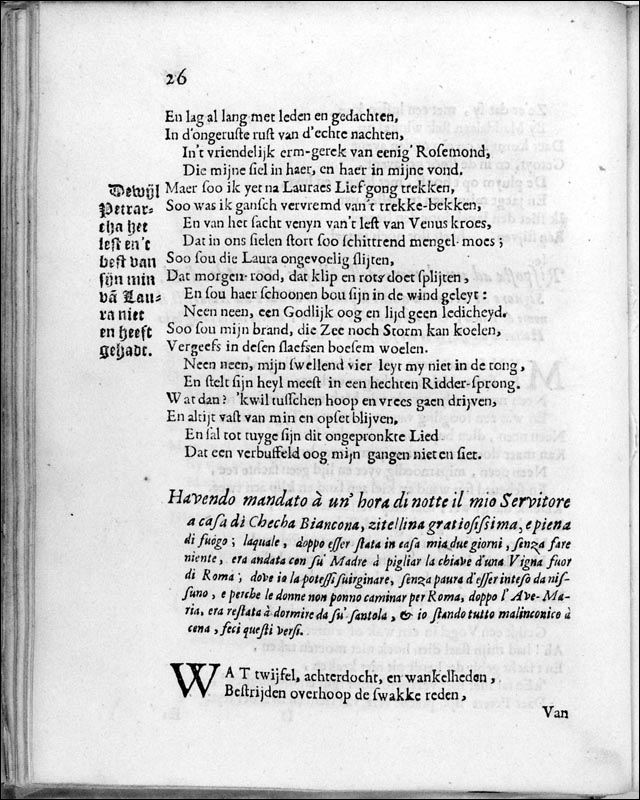 26
En lag al lang met leden en gedachten,
In d'ongeruste rust van d'echte nachten,
In't vriendelijk erm-gerek van eenig' Rosemond,
Die mijne siel in haer, en haer in mijne vond.
Maer soo ik yet na Lauraes Lief gong trekken,
Soo was ik gansch vervremd van't trekke-bekken,
En van het sacht venyn van't lest van Venus kroes,
Dat in ons sielen stort soo schittrend mengel-moes;
Soo sou die Laura ongevoelig slijten,
Dat morgen-rood, dat klip en rots doet splijten,
En sou haer schoonen bou sijn in de wind geleyt:
Neen neen, een Godlijk oog en lijd geen ledicheyd.
Soo sou mijn brand, die Zee noch Storm kan koelen,
Vergeefs in desen slaefsen boesem woelen.
Neen neen, mijn swellend vier leyt my niet in de tong,
En stelt sijn heyl meest in een hechten Ridder-sprong.
Wat dan? 'kwil tusschen hoop en vrees gaen drijven,
En altijt vast van min en opset blijven,
En sal tot tuyge sijn dit ongepronkte Lied
Dat een verbuffeld oog mijn gangen niet en siet.
Dewijl
Petrar-
cha het
lest en't
best van
sijn min
vã Lau-
ra niet
en heeft
gehadt.
Havendo mandato à un' hora di notte il mio Servitore
a casa di Checha Biancona, zitellina gratiosissima, e piena
di fuogo; laquale, doppo esser stata in casa mia due giorni, senza fare
niente, era andata con su' Madre à pigliar la chiave d'una Vigna fuor
di Roma; dove io la potessi suirginare, senza paura d'esser inteso da nis-
suno, e perche le donne non ponno caminar per Roma, doppo l' Ave-Ma-
ria, era restata à dormire da su' santola, & io stando tutto malinconico à
cena, feci questi versi.
WAT twijfel, achterdocht, en wankelheden,
Bestrijden overhoop de swakke reden,
Van